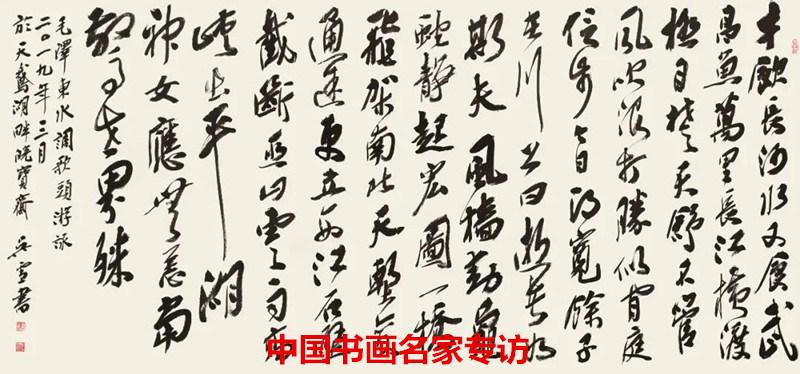 才飲長沙水又食武
昌魚萬里長江橫渡
極目楚天舒不管
風吹浪打勝似閒庭
信步今日得寬餘子
在川上曰逝者如
斯夫風樯動龜
蛇靜起宏圖一橋
飛架南北天塹變
通途更立西江石壁
截斷巫山雲雨高
峽出平湖
神女應無恙當
驚世界殊
毛澤東水調歌頭游泳
二〇一九年三月
於天鵝湖畔寶齋 吴雪書
中国书画名家专访